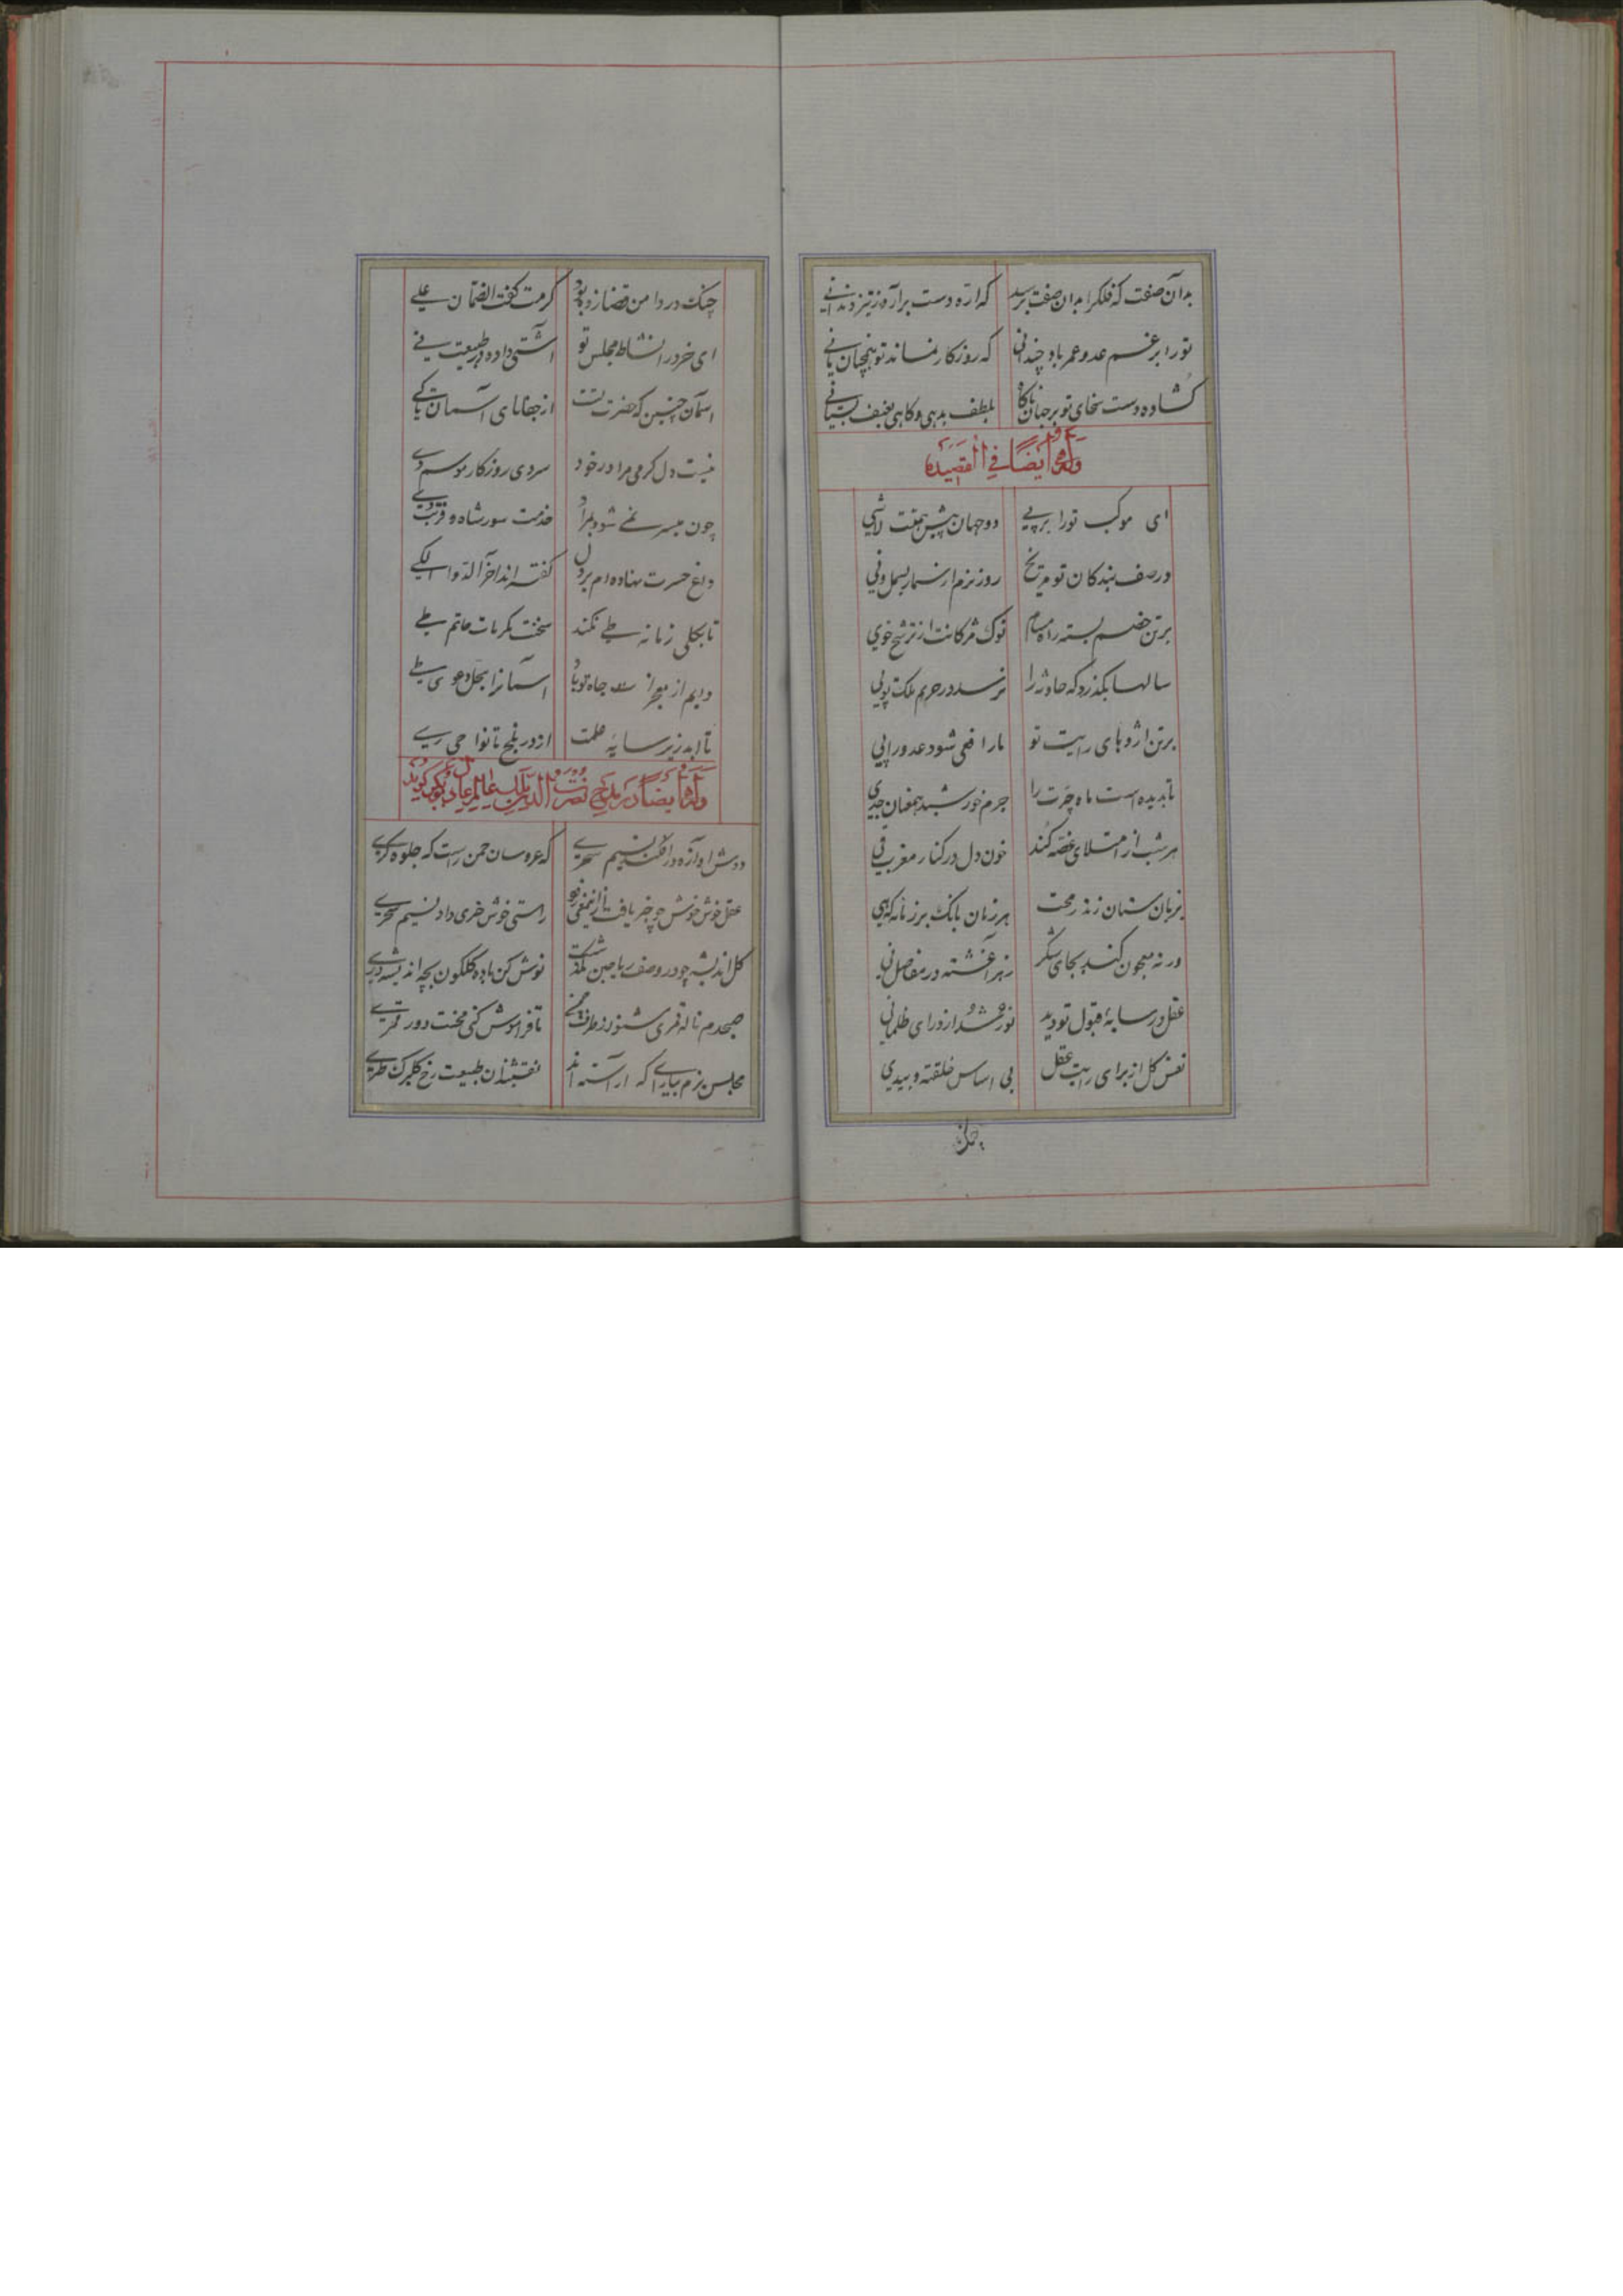 بدآن صفت که فلکرا بدان صفت برسد که ارّه دست برآرد ز تیز دندانے
تو را برغم عدو عمر باد چندانی که روزکار نماند تو همچنان مانے
کشاده دست سخای تو بر جهان ناکاه بلطف بدهی و کاهی بعنف بستانے
وله ایضًا فی القصیده
ای موکب تورا بر پیے دو جهان پیش همتت لاشی
در صف بندکان تو مریخ روز بزم از شمار بسمل و نی
برتن خصم بسته راه مسام نوک مژکانت از ترشح خوی
سالها بکذرد که حادثه را نرسد در حریم ملکت پی
برتن اژدهای رایت تو مار افعی شود عدو را پی
تا بدیده است ماه چترت را جرم خورشید همعنان جدی
هر شب از امتلای غصه کند خون دل در کنار مغرب قی
بزبان سنان زند رمحت هر زمان بانک بر زمانه که هی
ور نه معجون کند بجای شکر زهر آغشته در مفاصل نی
عقل در سایهٔ قبول تو دید نور خورشید از ورای ظلمانی
نفس کل از برای رایت عقل بی اساس خلقته و بیدی
چنک
چنک در دامن قضا زده بود کرمت کفت الضمان علے
ای خرد را نشاط مجلس تو آشتی داده در طبیعت مے
آسمان چنین که حضرت تست از جفاهای آسمان تا کے
نیست دل کرمی مرا در خود سردی روزکار موسم دے
چون میسر نمے شود بمراد خدمت سور شاه و قربت وے
داغ حسرت نهاده ام بر دل کفته اند آخر الدواء الکے
تا بکلی زمانه طے نکند سخت مکرمات حاتم طے
دایم از معجزات جاه تو باد آسمانرا سجل دعوی طے
تا ابد زیر سایه علمت از در بلخ تا نواحی رے
وله ایضًا در مدح نصرت الدین ملک عالم عادل بوبکر کوید
دوش آوازه در افکند نسیم سحرے که عروسان چمن راست که جلوه کرے
عقل خوش خوش چو خبر یافت ازین معنی کفت راستی خوش خبری داد نسیم سحرے
کل اندیشه چو در وصف ریاحین بکذشت نوش کن باده کلکون بچه اندیشه درے
صبحدم ناله قمری شنو از طرف چمن تا فراموش کنی محنت دور قمرے
مجلس بزم بیارای که آراسته اند نقشبندان طبیعت رخ کلبرک طرے